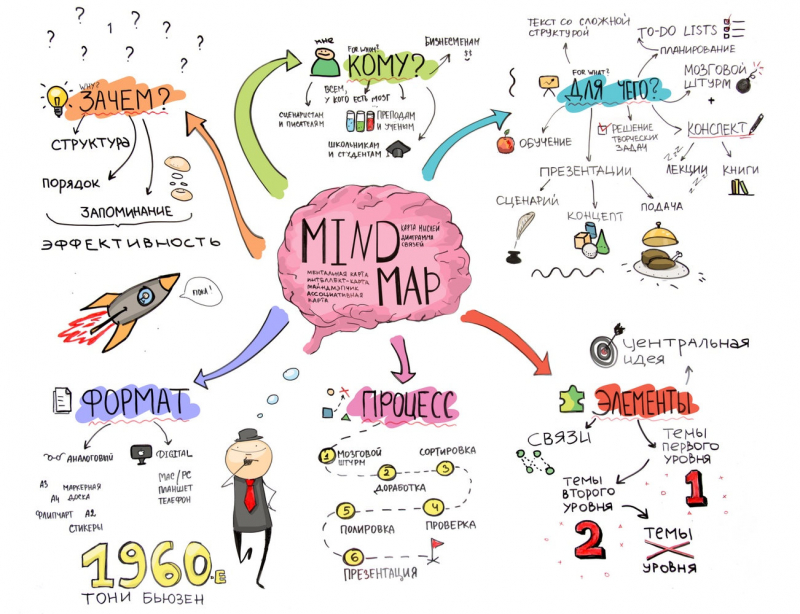 MIND
MAP
КАРТА МЫСЛЕЙ
ДИАГРАММА
СВЯЗЕЙ
МЕНТАЛЬНАЯ КАРТА
ИНТЕЛЛЕКТ-КАРТА
МАЙНДМЭПЧИК
АССОЦИАТИВНАЯ
КАРТА
? ? 1 ? ?
? ? ?
WHY?
ЗАЧЕМ?
СТРУКТУРА
ПОРЯДОК
ЗАПОМИНАНИЕ
ЭФФЕКТИВНОСТЬ
ПОКА!
МНЕ
FOR WHOM?
КОМУ?
БИЗНЕСМЕНАМ
$$
ВСЕМ,
У КОГО ЕСТЬ МОЗГ
СЦЕНАРИСТАМ
И ПИСАТЕЛЯМ
ПРЕПОДАМ
И УЧЕНЫМ
ШКОЛЬНИКАМ
И СТУДЕНТАМ
ТЕКСТ СО СЛОЖНОЙ
СТРУКТУРОЙ
TO-DO LISTS
ПЛАНИРОВАНИЕ
FOR WHAT?
ДЛЯ ЧЕГО?
МОЗГОВОЙ
ШТУРМ
+
ОБУЧЕНИЕ
РЕШЕНИЕ
ТВОРЧЕСКИХ
ЗАДАЧ
КОНСПЕКТ
ZZZ
ZZZ
ЛЕКЦИИ
КНИГИ
ПРЕЗЕНТАЦИИ
СЦЕНАРИЙ
КОНЦЕПТ
ПОДАЧА
ФОРМАТ
АНАЛОГОВЫЙ
DIGITAL
А3
МАРКЕРНАЯ
А4
ДОСКА
ФЛИПЧАРТ
А2
СТИКЕРЫ
MAC/PC
ПЛАНШЕТ
ТЕЛЕФОН
1960-Е
ТОНИ БЬЮЗЕН
ПРОЦЕСС
1 МОЗГОВОЙ
ШТУРМ
2
ДОРАБОТКА
СОРТИРОВКА
3
4
ПРОВЕРКА
5
ПОЛИРОВКА
6
ПРЕЗЕНТАЦИЯ
ЦЕНТРАЛЬНАЯ
ИДЕЯ
ЭЛЕМЕНТЫ
СВЯЗИ
ТЕМЫ
ПЕРВОГО
УРОВНЯ
1
ТЕМЫ
ВТОРОГО
УРОВНЯ
2
ТЕМЫ
X
УРОВНЯ